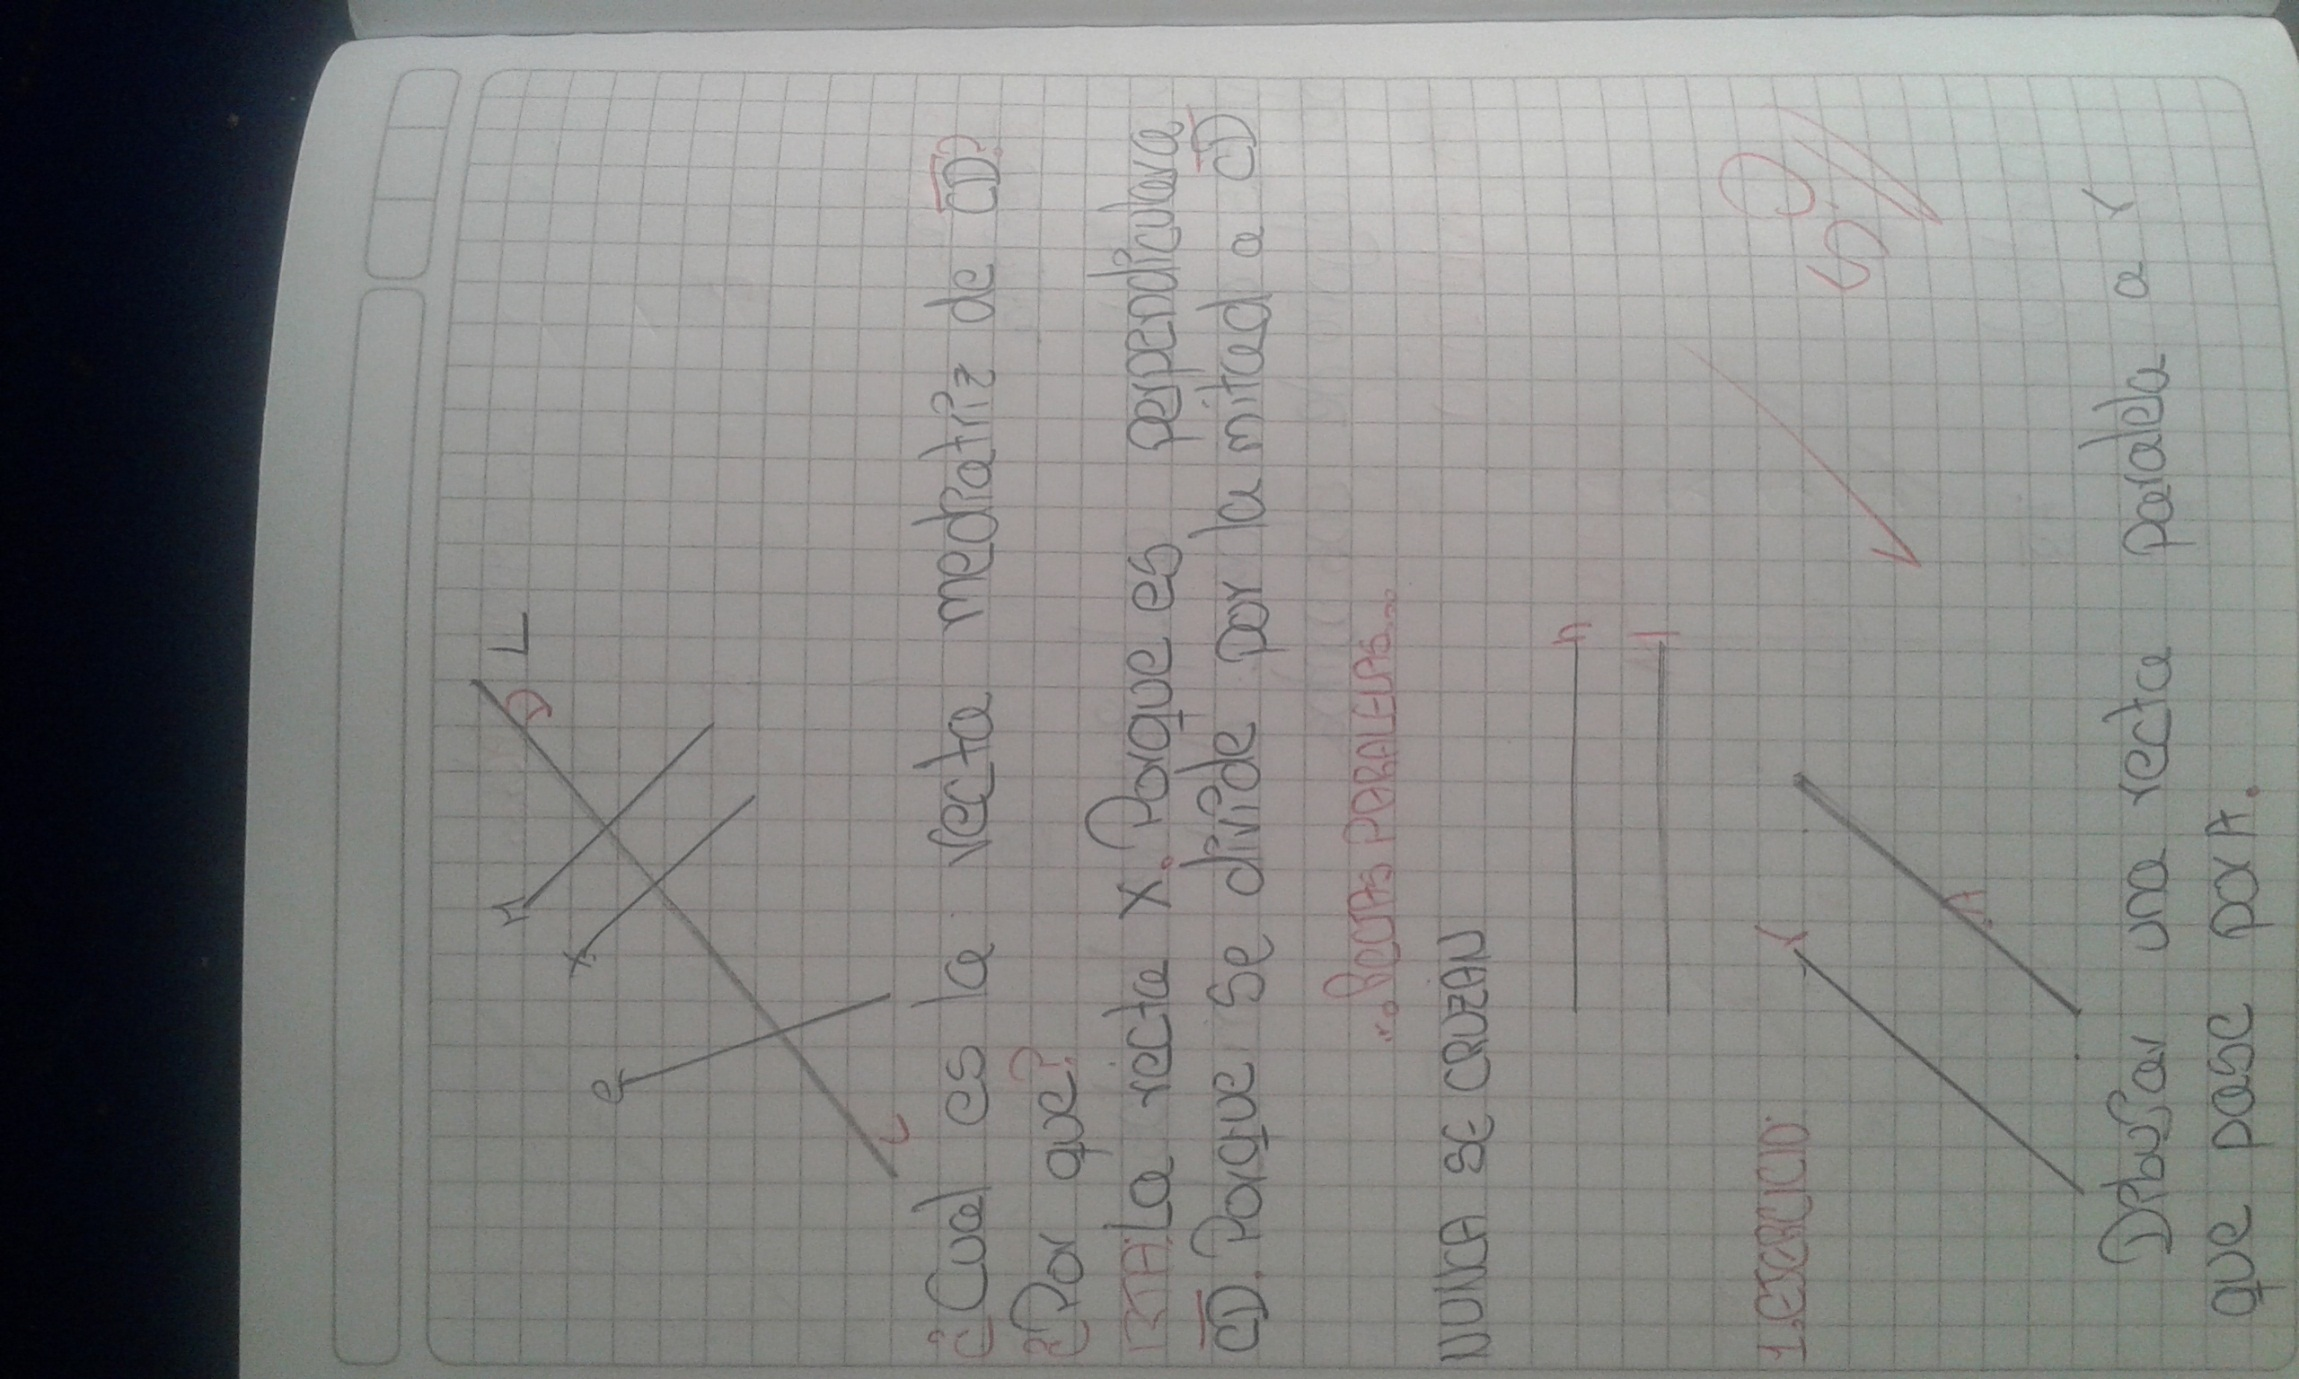 L
D
M
X
P
C
¿Cual es la recta mediatriz de CD?
¿Por que?
RTA: La recta X. Porque es perpendicular a
CD. Porque se divide por la mitad a CD
...RECTAS PARALELAS...
NUNCA SE CRUZAN
h
1. EJERCICIO:
Y
A
5.0
Dibujar una recta paralela a Y
que pase por A.